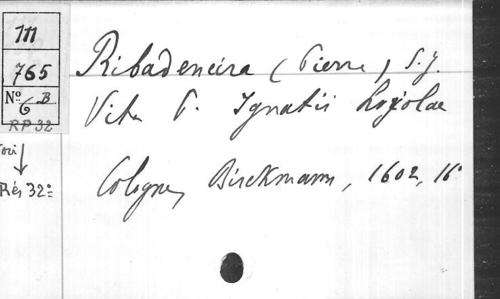 111
765
No 6 B
RP 32
Rés 32o
Ribadeneira (Pierre, S.J.
Vita P. Ignatii Loyolae
Cologne, Birckmann, 1602, 16o